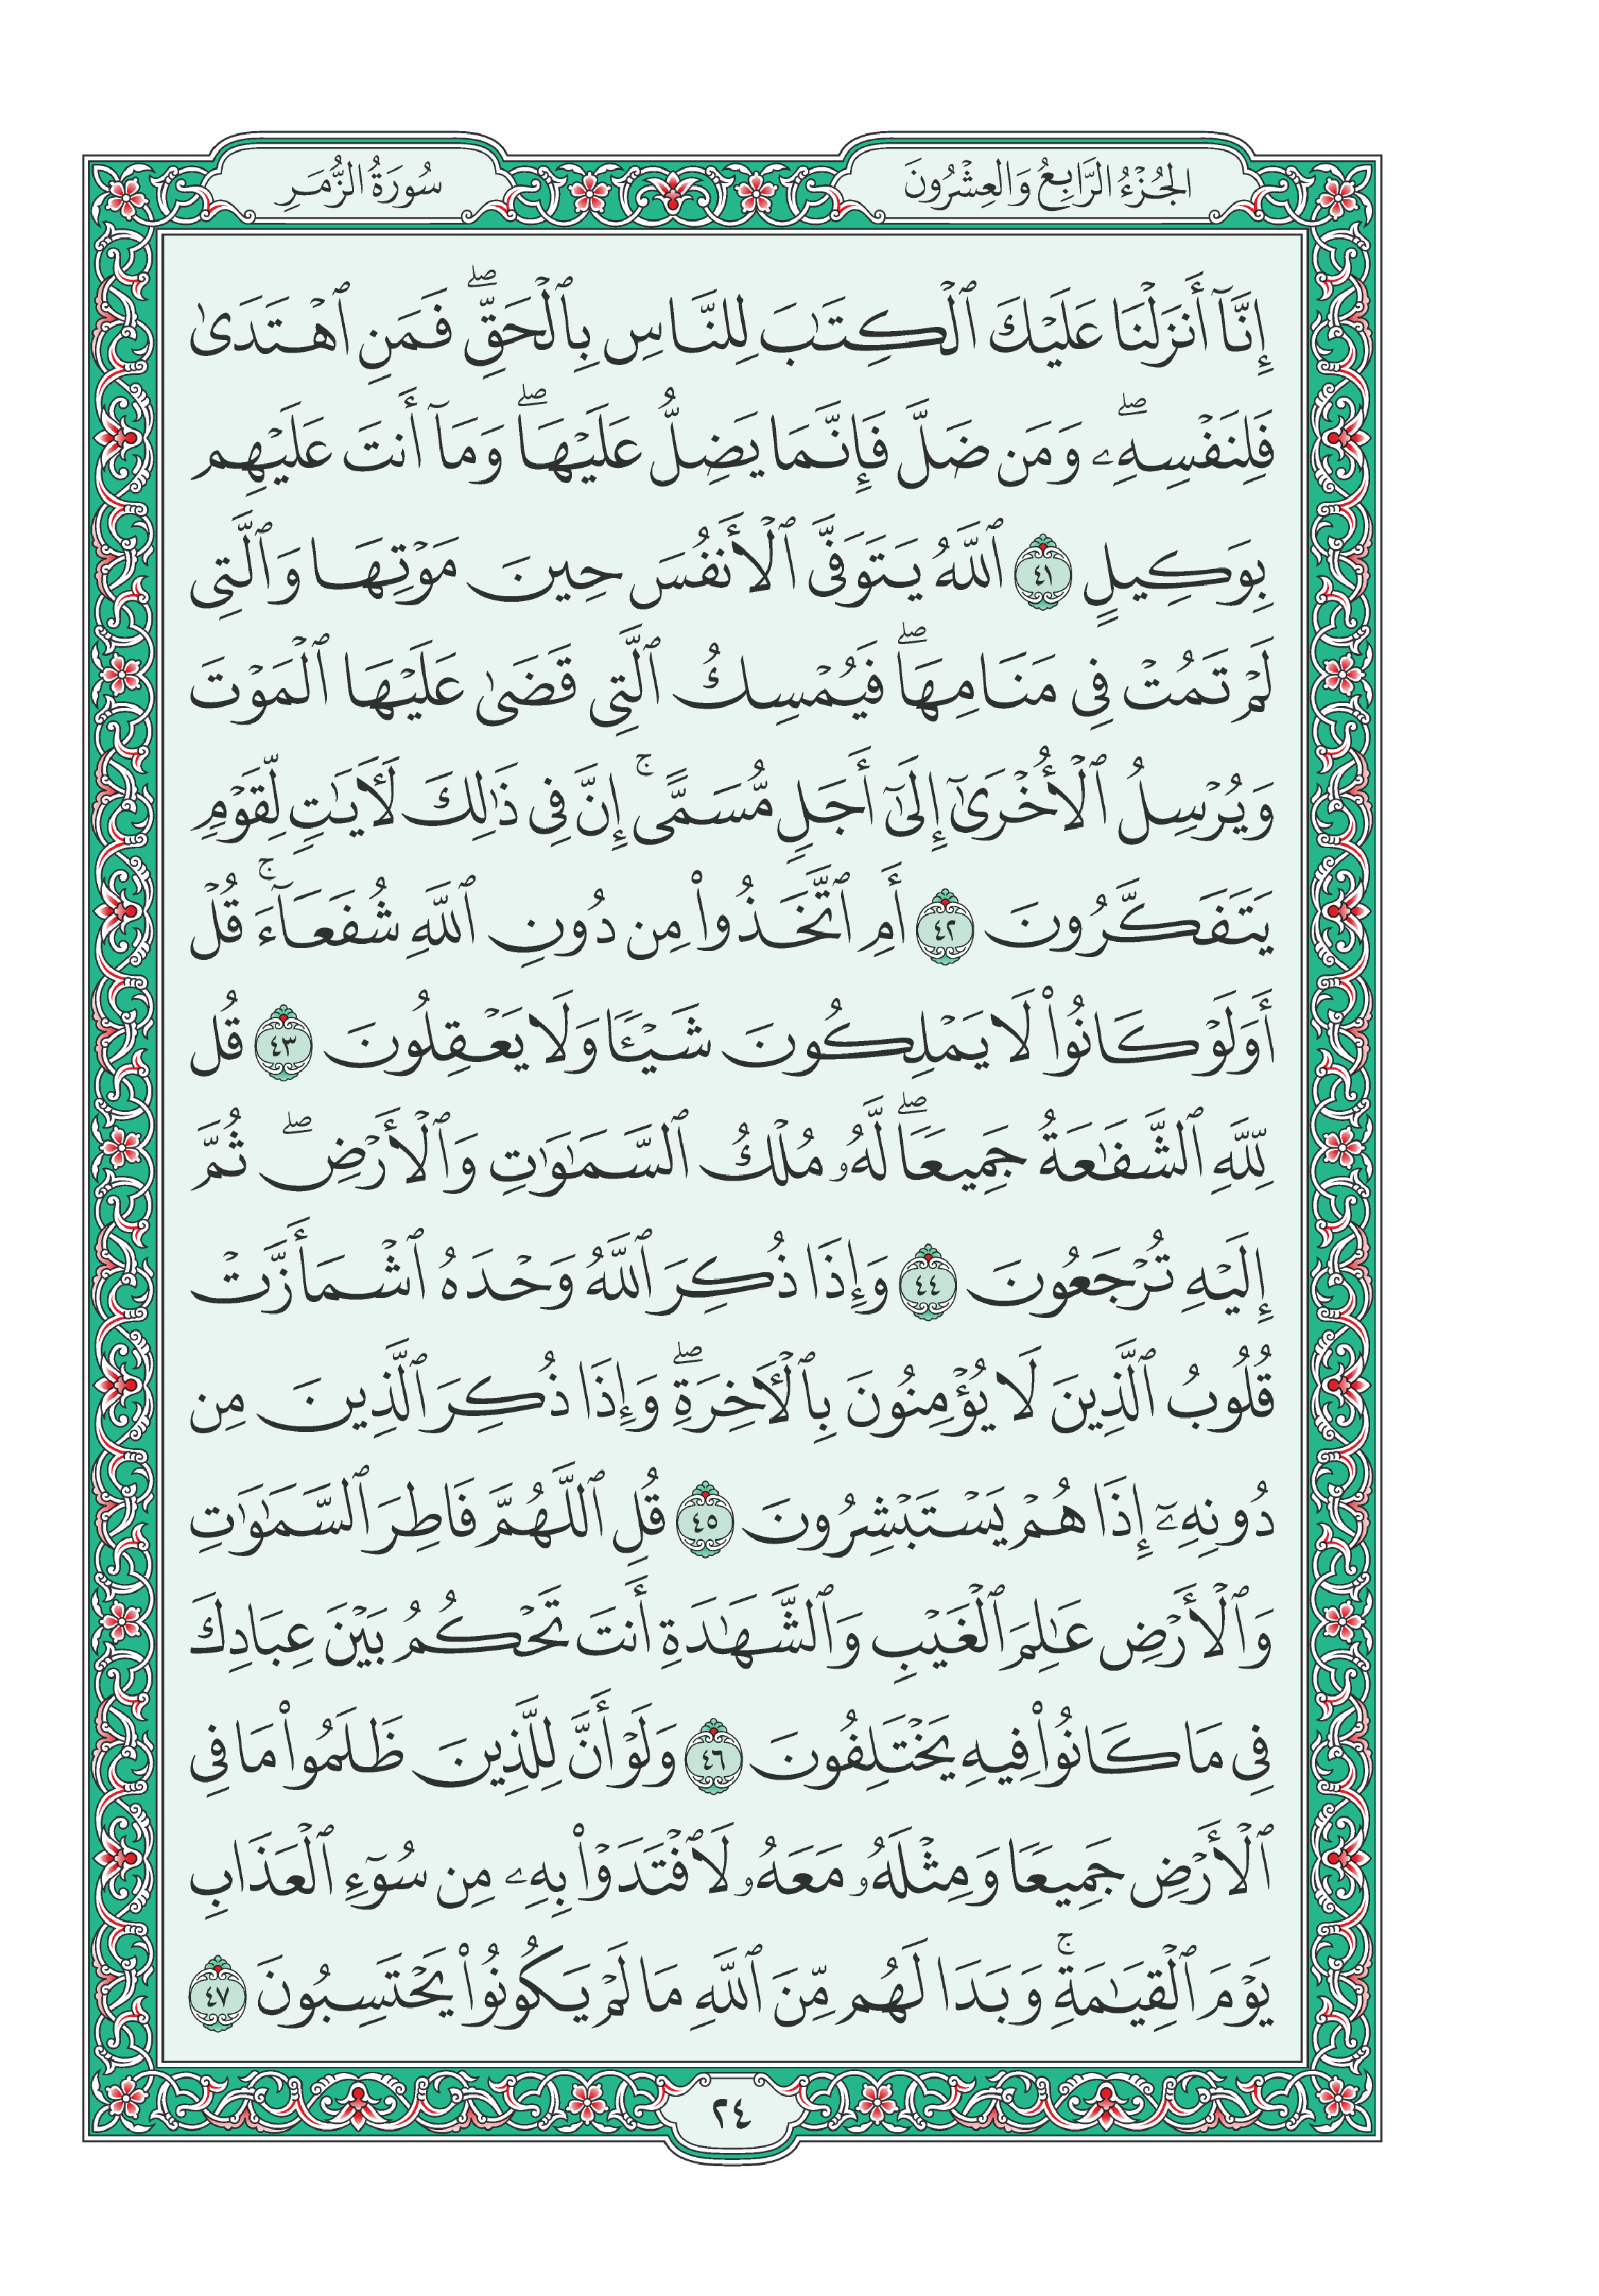 الجُزْءُ الرَّابِعُ وَالعِشْرُونَ
سُورَةُ الزُّمَرِ
إِنَّآ أَنزَلْنَا عَلَيْكَ ٱلْكِتَٰبَ لِلنَّاسِ بِٱلْحَقِّۖ فَمَنِ ٱهْتَدَىٰ
فَلِنَفْسِهِۦۖ وَمَن ضَلَّ فَإِنَّمَا يَضِلُّ عَلَيْهَاۖ وَمَآ أَنتَ عَلَيْهِم
بِوَكِيلٍ ٤١ ٱللَّهُ يَتَوَفَّى ٱلْأَنفُسَ حِينَ مَوْتِهَا وَٱلَّتِى
لَمْ تَمُتْ فِى مَنَامِهَاۖ فَيُمْسِكُ ٱلَّتِى قَضَىٰ عَلَيْهَا ٱلْمَوْتَ
وَيُرْسِلُ ٱلْأُخْرَىٰٓ إِلَىٰٓ أَجَلٍ مُّسَمًّىۚ إِنَّ فِى ذَٰلِكَ لَـَٔايَٰتٍ لِّقَوْمٍ
يَتَفَكَّرُونَ ٤٢ أَمِ ٱتَّخَذُوا۟ مِن دُونِ ٱللَّهِ شُفَعَآءَۚ قُلْ
أَوَلَوْ كَانُوا۟ لَا يَمْلِكُونَ شَيْـًٔا وَلَا يَعْقِلُونَ ٤٣ قُل
لِّلَّهِ ٱلشَّفَٰعَةُ جَمِيعًاۖ لَّهُۥ مُلْكُ ٱلسَّمَٰوَٰتِ وَٱلْأَرْضِۖ ثُمَّ
إِلَيْهِ تُرْجَعُونَ ٤٤ وَإِذَا ذُكِرَ ٱللَّهُ وَحْدَهُ ٱشْمَأَزَّتْ
قُلُوبُ ٱلَّذِينَ لَا يُؤْمِنُونَ بِٱلْـَٔاخِرَةِۖ وَإِذَا ذُكِرَ ٱلَّذِينَ مِن
دُونِهِۦٓ إِذَا هُمْ يَسْتَبْشِرُونَ ٤٥ قُلِ ٱللَّهُمَّ فَاطِرَ ٱلسَّمَٰوَٰتِ
وَٱلْأَرْضِ عَٰلِمَ ٱلْغَيْبِ وَٱلشَّهَٰدَةِ أَنتَ تَحْكُمُ بَيْنَ عِبَادِكَ
فِى مَا كَانُوا۟ فِيهِ يَخْتَلِفُونَ ٤٦ وَلَوْ أَنَّ لِلَّذِينَ ظَلَمُوا۟ مَا فِى
ٱلْأَرْضِ جَمِيعًا وَمِثْلَهُۥ مَعَهُۥ لَٱفْتَدَوْا۟ بِهِۦ مِن سُوٓءِ ٱلْعَذَابِ
يَوْمَ ٱلْقِيَٰمَةِۚ وَبَدَا لَهُم مِّنَ ٱللَّهِ مَا لَمْ يَكُونُوا۟ يَحْتَسِبُونَ ٤٧
٢٤